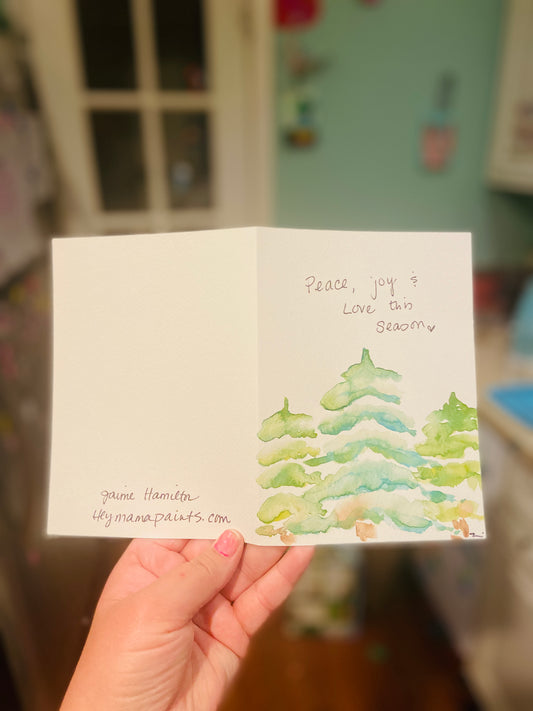 Peace, joy &
Love this
Season
Jaime Hamilton
Heymamapaints.com